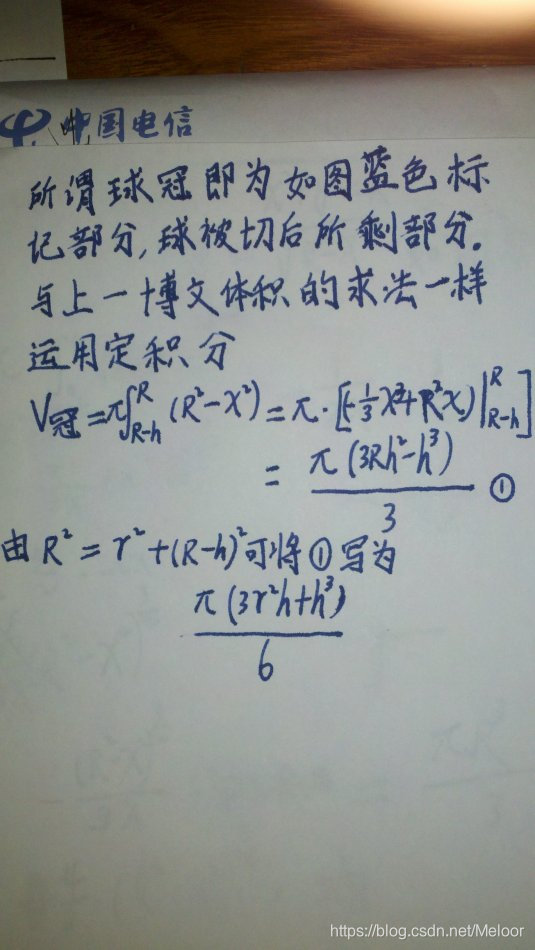 中国电信
所谓球冠即为如图蓝色标
记部分,球被切后所剩部分。
与上一博文体积的求法一样
运用定积分
V冠=π∫_{R-h}^{R}(R²-x²)=π·[(-⅓x³+R²x)|_{R-h}^{R}]
= π(3Rh²-h³)/3 ①
由R²=r²+(R-h)²可将①写为
π(3r²h+h³)/6
https://blog.csdn.net/Meloor